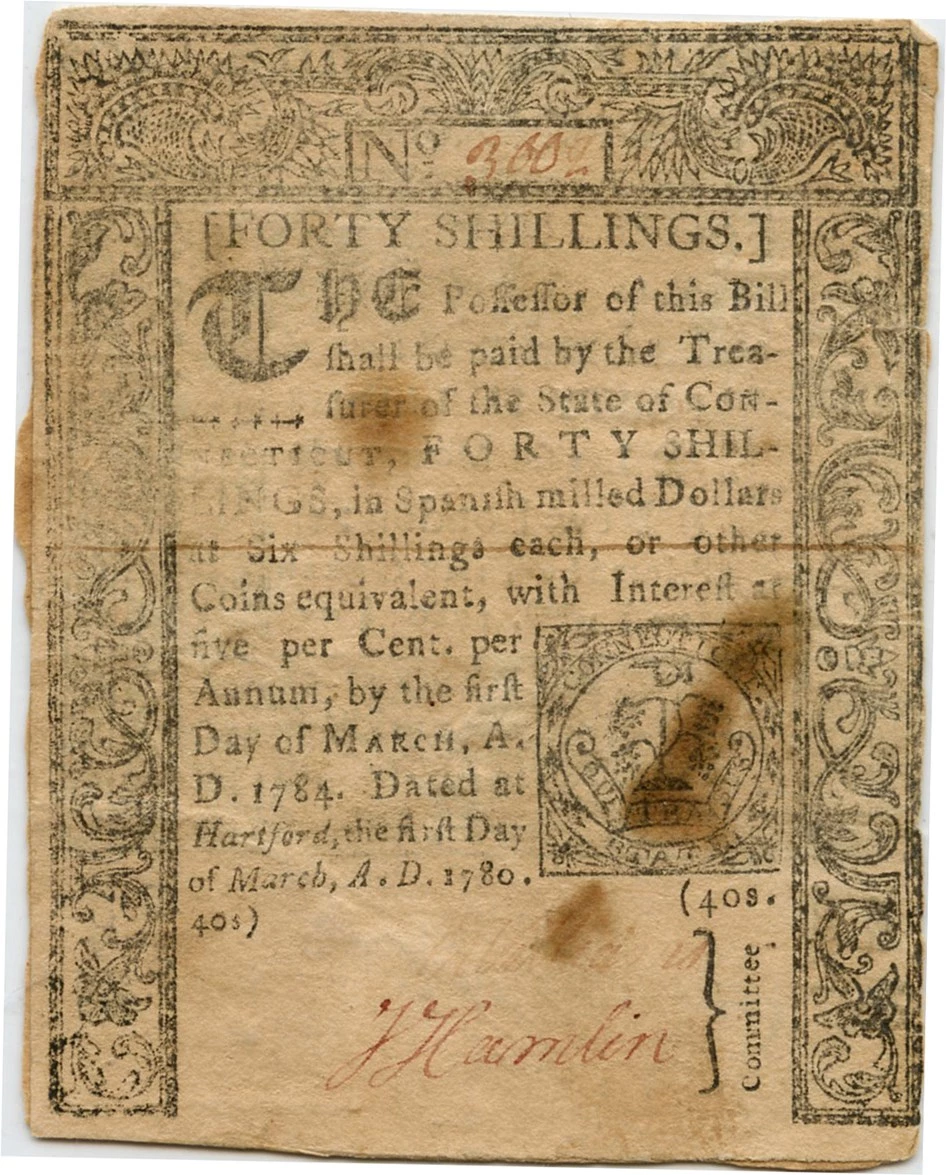 No. 3002
[FORTY SHILLINGS.]
THE Poſſeſſor of this Bill
ſhall be paid by the Trea-
ſurer of the State of Con-
necticut, FORTY SHIL-
LINGS, in Spaniſh milled Dollars
at Six Shillings each, or other
Coins equivalent, with Intereſt at
five per Cent. per
Annum, by the firſt
Day of MARCH, A.
D. 1784. Dated at
Hartford, the firſt Day
of March, A. D. 1780.
40s) (40s.
J Hamlin
Committee